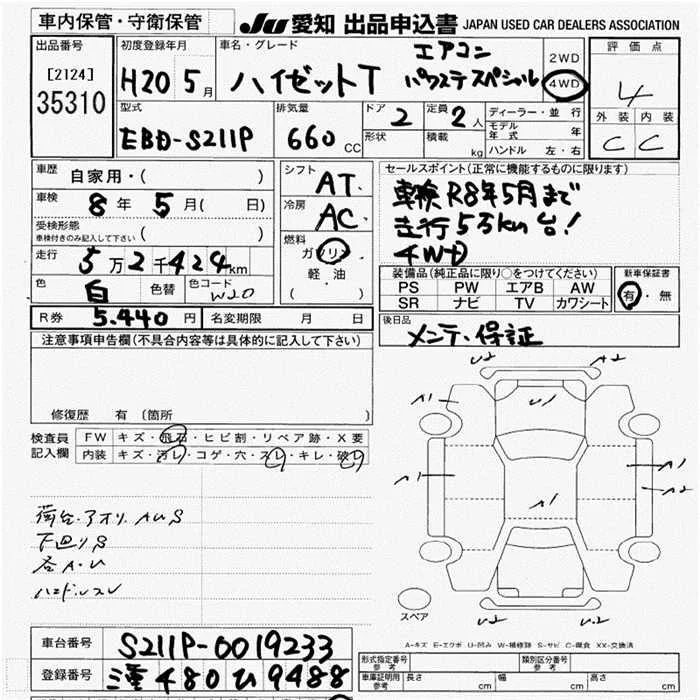 車内保管・守衛保管
JU 愛知 出品申込書 JAPAN USED CAR DEALERS ASSOCIATION
出品番号 [2124] 35310
初度登録年月 H20 5月
車名・グレード ハイゼットT エアコン パワステスペシャル
2WD 4WD
評価点 4
外装 内装
C C
型式 EBD-S211P
排気量 660 CC
ドア 2 定員 2人
形状 積載 kg
ディーラー・並行
モデル年式 年
ハンドル 左・右
車歴 自家用・( )
車検 8年 5月( 日)
受検形態 車検付きのみ記入して下さい ( )
走行 5万2千424km
色 白 色替 色コード W20
R券 5.440円 名変期限 月 日
シフト AT.
冷房 AC.
燃料 ガソリン
軽・油
( )
セールスポイント(正常に機能するものに限ります)
車検R8年5月まで
走行5万km台!
4WD
装備品(純正品に限り○をつけてください)
PS PW エアB AW
SR ナビ TV カワシート
新車保証書 有・無
後日品 メンテ・保証
注意事項申告欄(不具合内容等は具体的に記入して下さい)
修復歴 有 〔箇所 〕
検査員記入欄
FW キズ・飛石・ヒビ割・リペア跡・X要
内装 キズ・汚レ・コゲ・穴・スレ・キレ・破レ
荷台.アオリ AUS
下回りS
各A・U
ハンドルスレ
U2 A2
A1 U1
A1 A1 A1 A2
U2 U2
スペア
A-キズ E-エクボ U-凹み W-補修跡 S-サビ C-腐食 XX-交換済
車台番号 S211P-0019233
登録番号 三重 480 ひ 9488
形式指定番号 参考 類別区分番号 参考
車庫証明用 参考 長さ cm 幅 cm 高さ cm